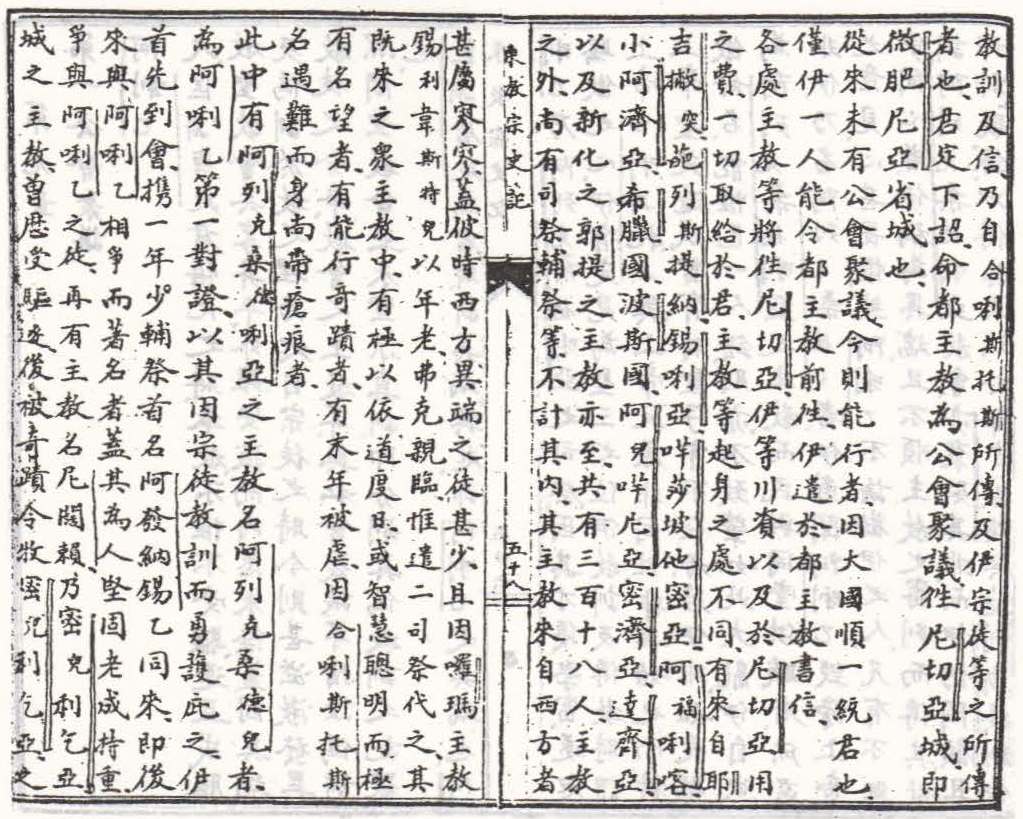 教訓及信乃自合唎斯托斯所傳及伊宗徒等之所傳
者也君定下詔命都主教為公會聚議徃尼切亞城即
微肥尼亞省城也
從來未有公會聚議今則能行者因大國順一統君也
僅伊一人能令都主教前徃伊遣於都主教書信
各處主教等將徃尼切亞伊等川資以及於尼切亞用
之費一切取給於君主教等起身之處不同有來自耶
吉撇突葩列斯提納錫唎亞哶莎坡他密亞阿福唎喀
小阿濟亞希臘國波斯國阿兒哶尼亞密濟亞達齊亞
以及新化之郭提之主教亦至共有三百十八人主教
之外尚有司祭輔祭等不計其內其主教來自西方者
東教宗史記
五十八
甚屬寥寥蓋彼時西方異端之徒甚少且因囉瑪主教
錫利韋斯特兒以年老弗克親臨惟遣二司祭代之其
既來之衆主教中有極以依道度日或智慧聰明而極
有名望者有能行奇蹟者有末年被虐因合唎斯托斯
名遇難而身尚帶瘡痕者
此中有阿列克桑德唎亞之主教名阿列克桑德兒者
為阿唎乙第一對證以其因宗徒教訓而勇護此之伊
首先到會携一年少輔祭首名阿發納錫乙同來即後
來與阿唎乙相爭而著名者蓋其為人堅固老成持重
爭與阿唎乙之徒再有主教名尼闊賴乃密兒利乞亞
城之主教曾歷受驅逐後被奇蹟令牧密兒利乞亞之